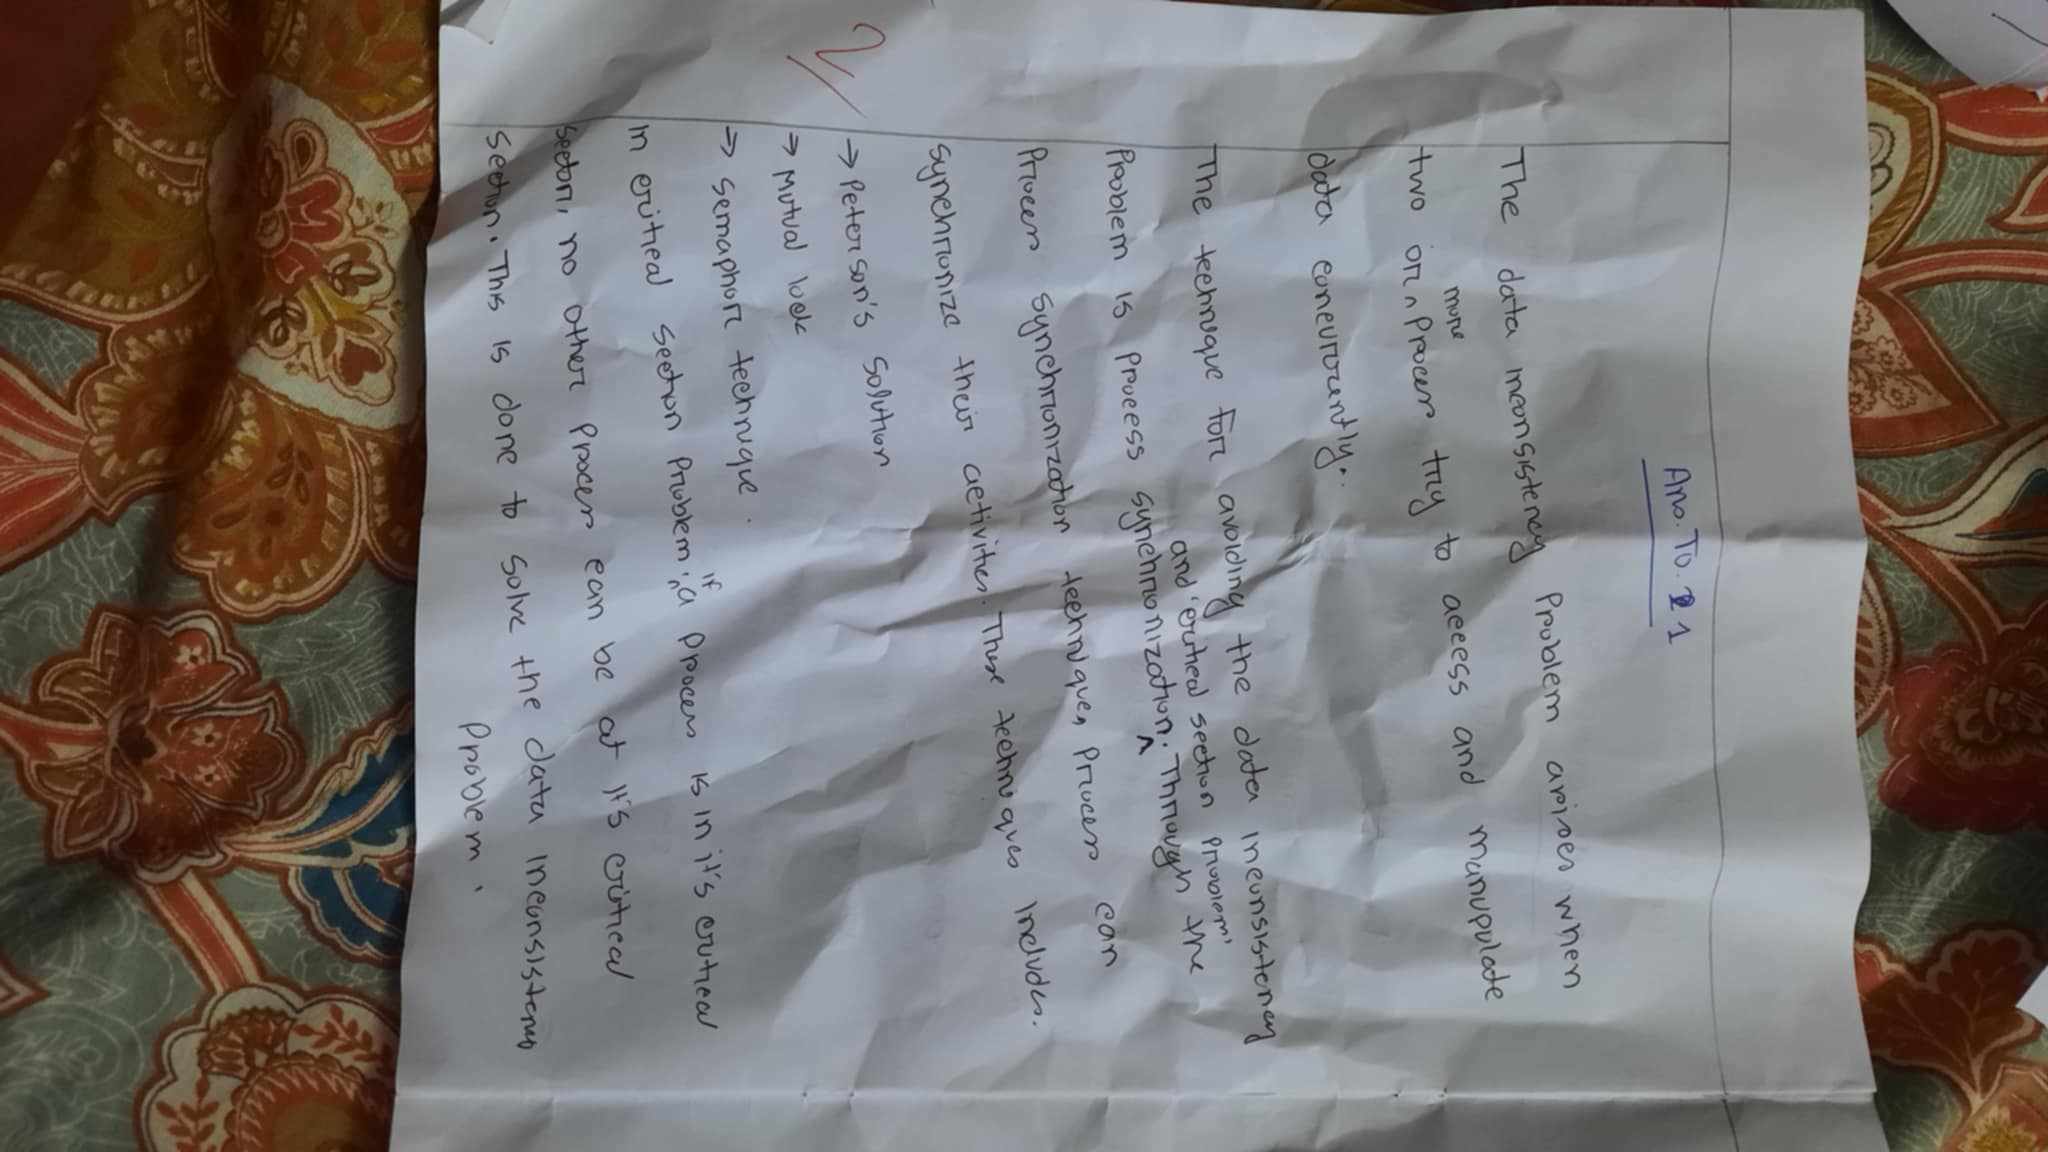 Ans. To. 1
The data inconsistency Problem arises when
more
two or ^ Process try to access and manupulate
data concurrently.
The technique for avoiding the data inconsistency
and 'critical section problem'
Problem is process synchronization. ^ Through the
Process synchronization technique, process can
synchronize their activities. These techniques includes.
→ Peterson's Solution
2
→ Mutual lock
→ Semaphore technique.
if
In critical section Problem : ^ a process is in it's critical
section, no other process can be at it's critical
section. This is done to solve the data inconsistency
Problem.